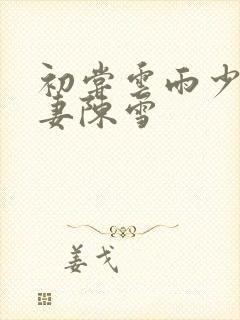 初尝雲雨少
妻陳雪
姜戈